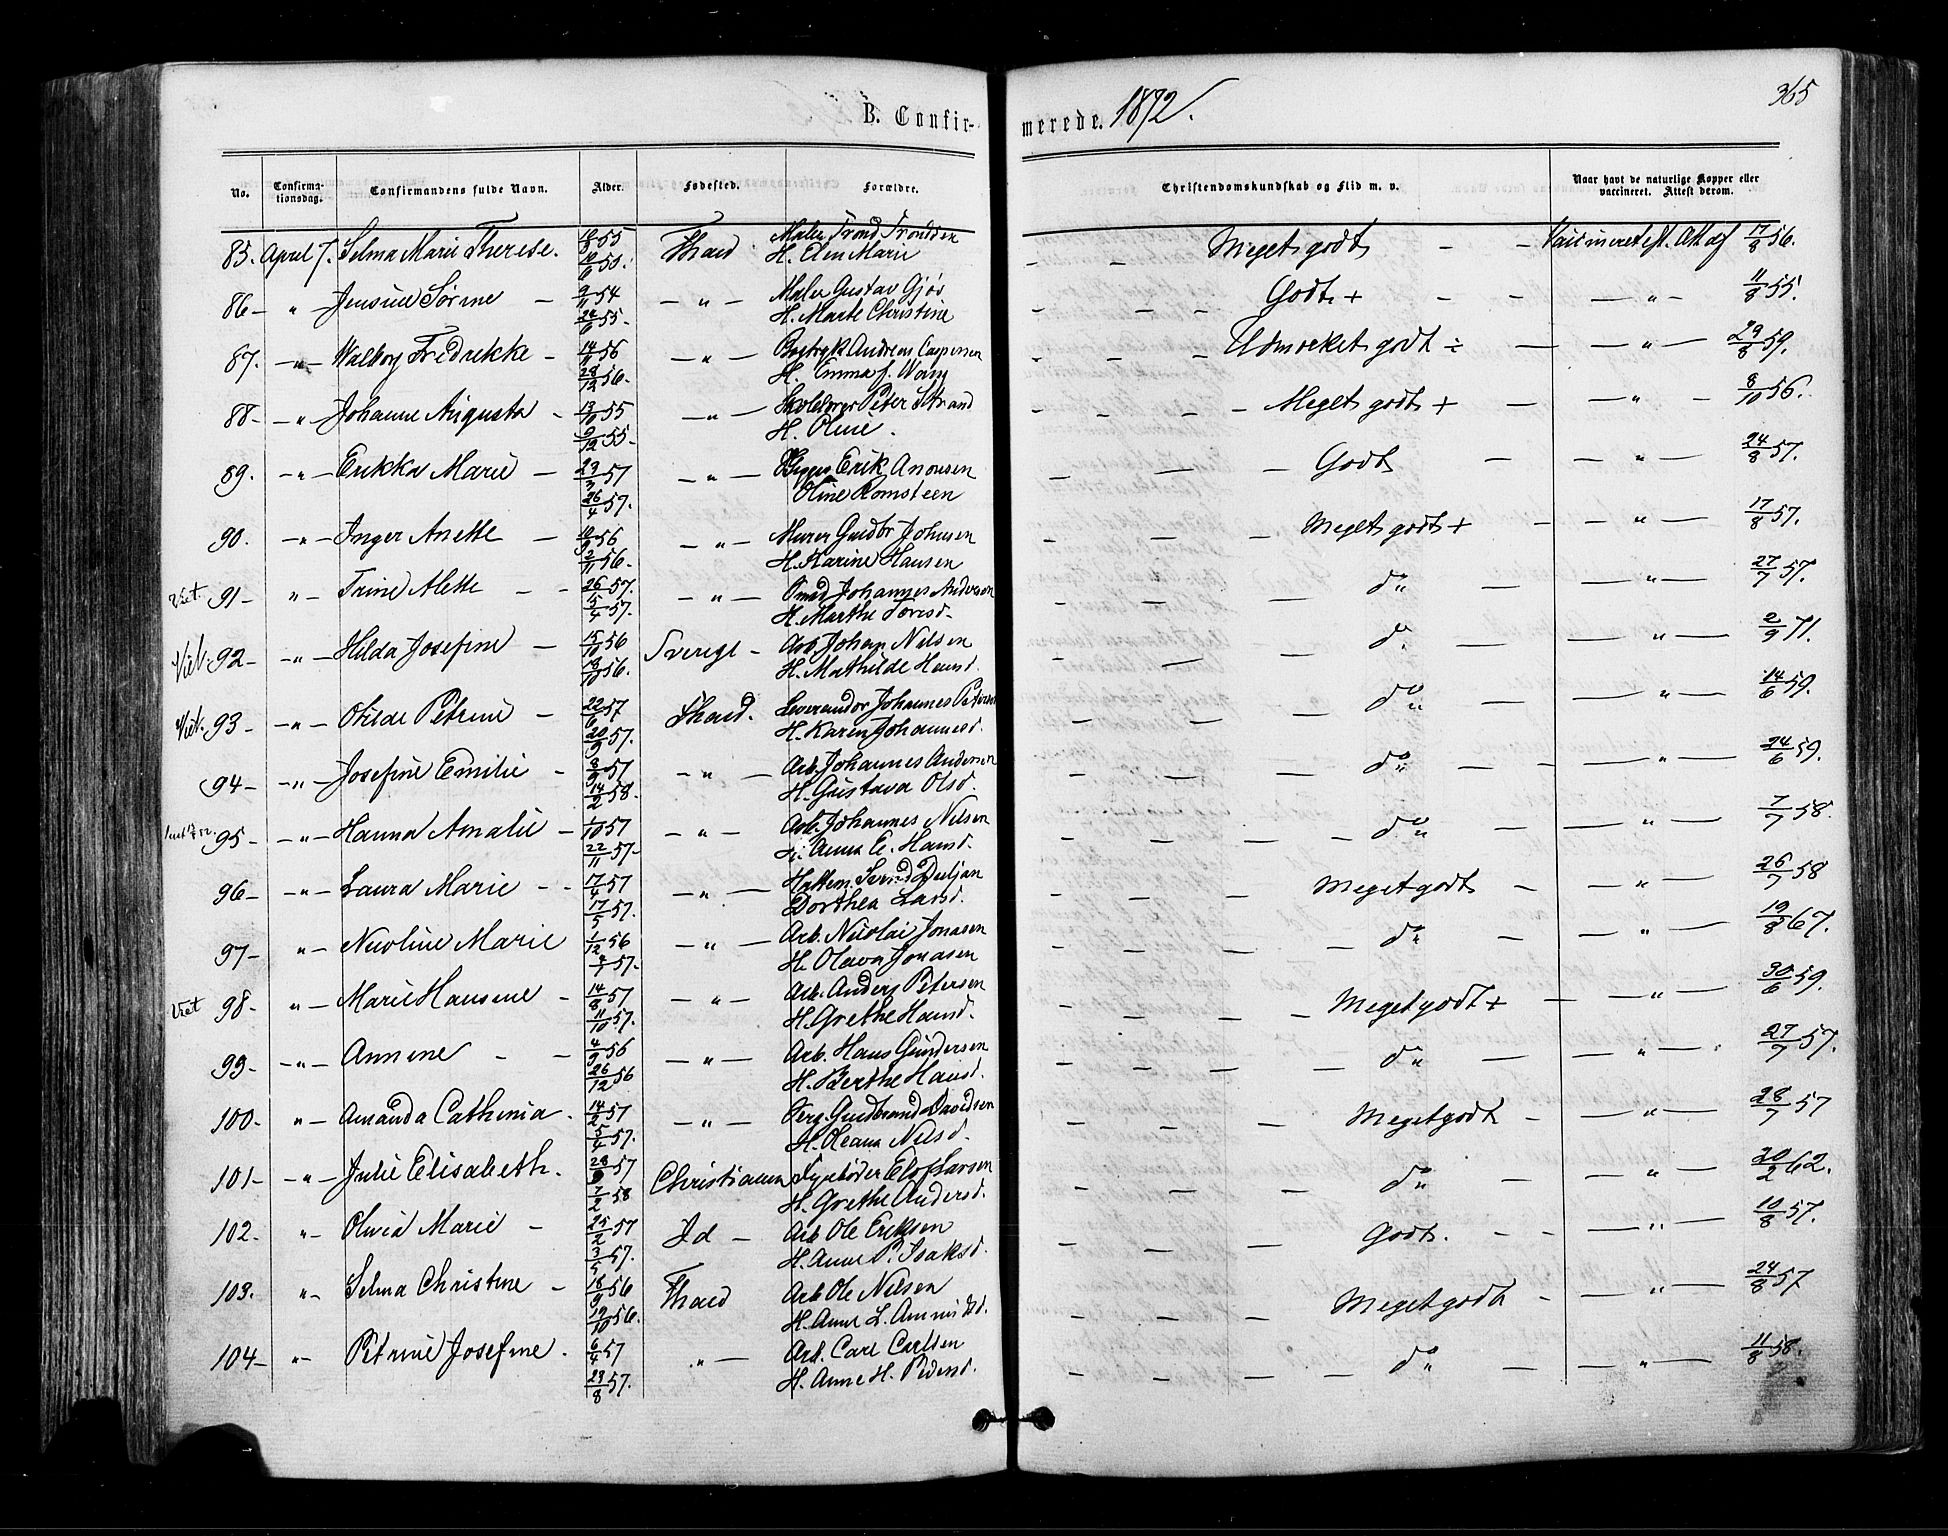 365
B. Confir-
merede. 1872.
No.
Confirma-
tionsdag.
Confirmandens fulde Navn.
Alder.
Fødested.
Forældre.
Christendomskundskab og Flid m. v.
Naar havt de naturlige Kopper eller
vaccineret. Attest derom.
85. April 7. Selma Marie Therese. Maler Trond Tronsen Meget godt - - 17/8 56.
H. Elen Marie
86 - " - Jensine - 9/11 54 - " - Maler Gustav Godt + - - - " - 11/8 55.
24/6 55. H. Marte Christine
87. - " - Walborg Fredrikke - 14/11 56 - " - Andreas Caspersen Udmærket godt ÷ - - " - 29/8 59.
28/12 56. H. Emma f.
88 - " - Johanne Augusta - 13/10 55 - " - Peter Strand - Meget godt + - " - 8/10 56.
9/12 55. H. Oline.
89. - " - Erikka Marie - 23/3 57 - " - Erik - Godt - - " - 24/8 57.
26/4 57. Oline Romsteen
90. - " - Inger Anette - 10/9 56 - " - Murer Guldbr Johnsen - Meget godt + - - " - 17/8 57.
2/11 56. H. Karine Hansen
Viet. 91 - " - Trine Alette - - 26/1 57. - " - Smed Johannes Andersen - do - - " - 27/7 57.
5/4 57. H. Marthe Toresd.
Viet. 92 - " - Hilda Josefine - 15/10 56 Sverige - Arb. Johan Nilsen - do - - " - 2/9 71.
18/10 56. H. Mathilde Hansd.
Viet. 93 - " - Otilde Petrine - 22/6 57 Thard. Leverandør Johannes Petersen - do - - " - 14/6 59.
20/9 57. H. Karen Johannesd.
94 - " - Josefine Emilie - 8/9 57 - " - Arb. Johannes Andersen - do - - " - 24/6 59.
14/2 58. H. Gustava Olsd.
95 - " - Hanna Amalie - 1/10 57 - " - Arb. Johannes Nilsen - do - - " - 7/7 58.
22/11 57. H. Anna E. Hansd.
96 - " - Laura Marie - - 17/4 57 - " - Meget godt - - " - 26/7 58
17/5 57. Dorthea Larsd.
97 - " - Nicoline Marie 1/12 56 - " - Arb. Nicolai Jonasen - do - - " - 19/8 67.
57. H. Olava Jonasen
Viet 98 - " - Marie Hansine - 14/8 57 - " - Arb. Anders Petersen - Meget godt + - - " - 30/6 59.
11/10 57. H. Grethe Hansd.
99 - " - Annine - - 4/9 56 - " - Arb. Hans Gundersen - do - - " - 27/7 57.
26/12 56 H. Berthe Hansd.
100. " - Amanda Cathinia. 14/2 57 - " - Serg. Gudbrand Davidsen Meget godt - - " - 28/7 57
5/4 57. H. Oleana Nilsd.
101 - " - Julie Elisabeth. 28/9 57 Christiania Fyrbøder Elof Larsen - do - - " - 20/2 62.
7/2 58 H. Grethe Andersd.
102. " - Olivia Marie - 25/2 57 Id - Arb Ole Eriksen - Godt. - - - " - 10/8 57.
3/5 57. H. Anne P. Isaksd.
103. " - Selma Christine - 18/9 56 Thard Arb Ole Nilsen - Meget godt - - " - 24/8 57
19/10 56. H. Anne L.
104 - " - Petrine Josefine. 6/4 57 " - Arb. Carl Carlsen - do - - " - 11/8 58.
23/8 57. H. Anne H. Pedersd.